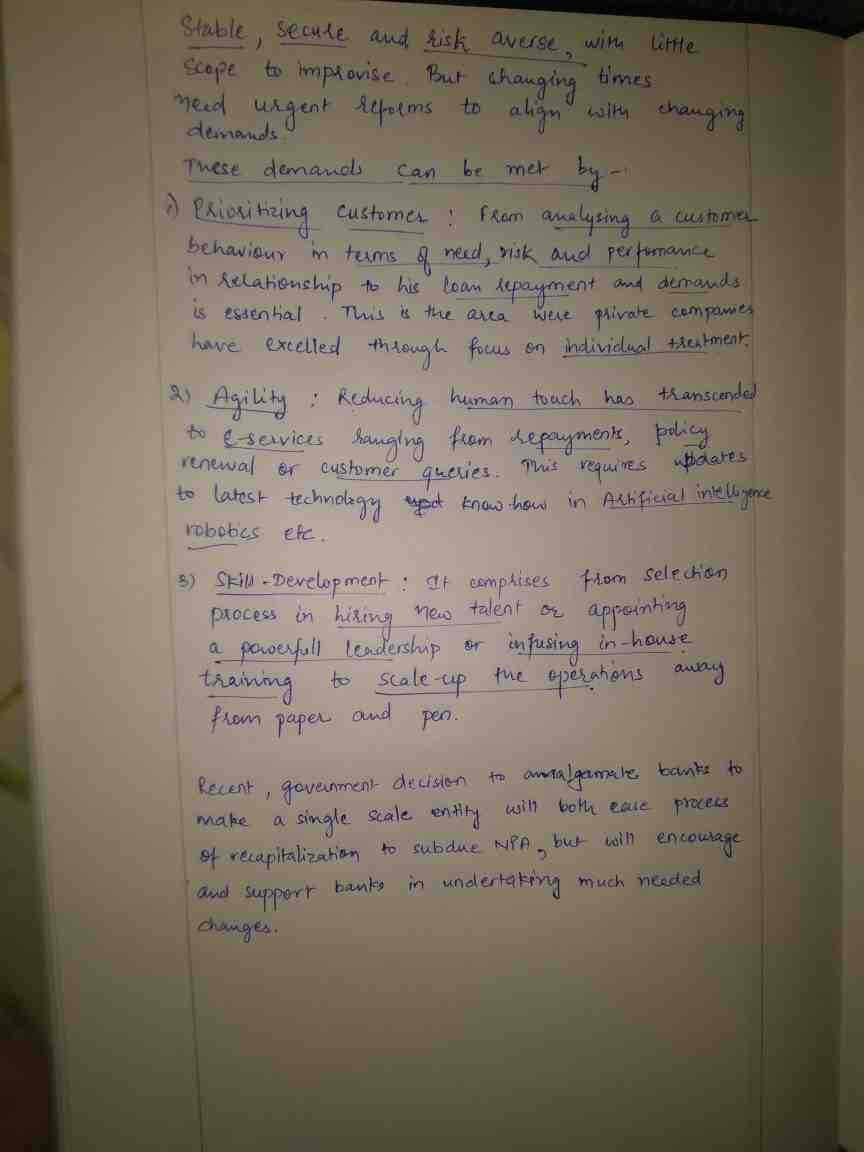 Stable, secure and risk averse, with little
scope to improvise. But changing times
need urgent reforms to align with changing
demands.
These demands can be met by -:
1) Prioritizing customer : From analysing a customer
behaviour in terms of need, risk and perfomance
in relationship to his loan repayment and demands
is essential. This is the area were private companies
have excelled through focus on individual treatment.
2) Agility : Reducing human touch has transcended
to e-services ranging from repayments, policy
renewal or customer queries. This requires updates
to latest technology know-how in Artificial intelligence
robotics etc.
3) Skill-Development : It comprises from selection
process in hiring new talent or appointing
a powerfull leadership or infusing in-house
training to scale-up the operations away
from paper and pen.
Recent, government decision to amalgamate banks to
make a single scale entity will both ease process
of recapitalization to subdue NPA, but will encourage
and support banks in undertaking much needed
changes.